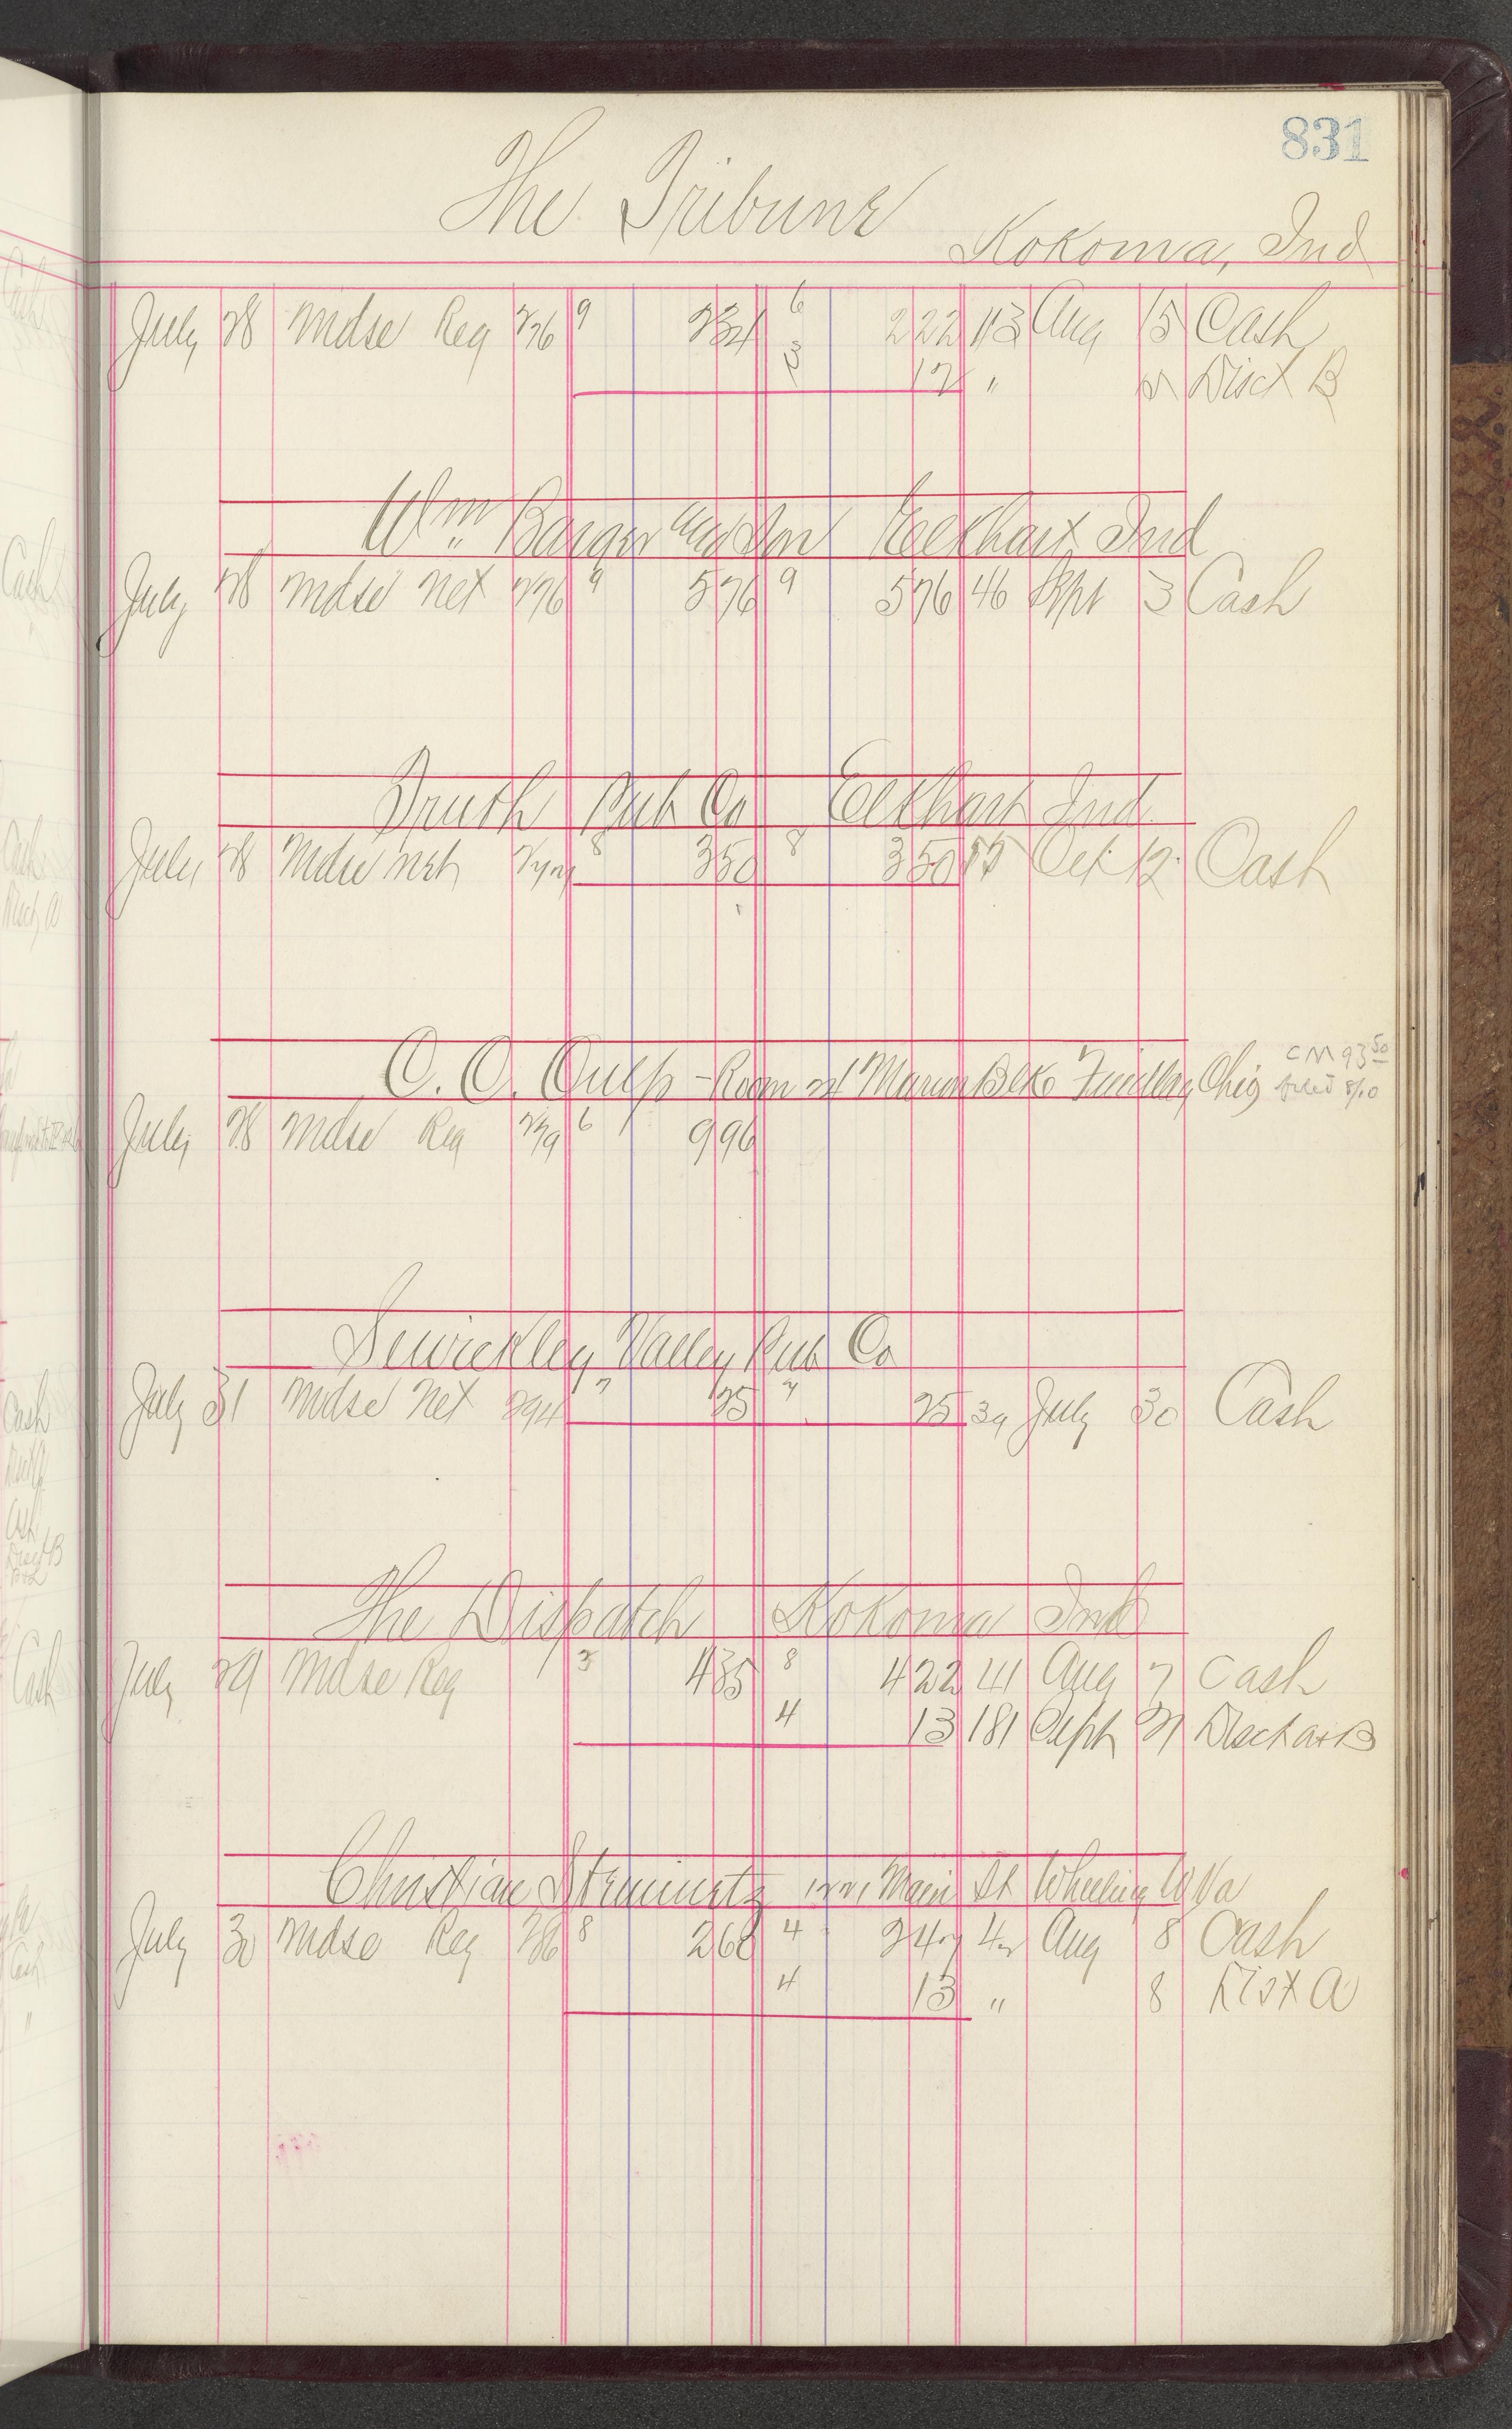 831
The Tribune Kokomo, Ind
July 28 Mdse Reg 276 9 234 6 222 113 Aug 15 Cash
3 12 " Disct B
Wm Barger and Son Elkhart Ind
July 28 Mdse Net 276 9 576 9 576 46 Sept 3 Cash
Truth Pub Co Elkhart Ind
July 28 Mdse Net 277 8 350 8 350 Oct 12 Cash
C. C. Culp - Room 21 Marion Blk Findlay Ohio CM 93 50
filed 8/10
July 28 Mdse Reg 279 6 996
Sewickley Valley Pub Co
July 31 Mdse Net 294 7 25 7 25 39 July 30 Cash
The Dispatch Kokomo Ind
July 29 Mdse Reg 3 435 8 422 41 Aug 7 Cash
4 13 181 Sept 21 Disct a+B
Christian Steinmetz Main St Wheeling W Va
July 30 Mdse Reg 286 8 260 4 247 42 Aug 8 Cash
4 13 " 8 Dist A